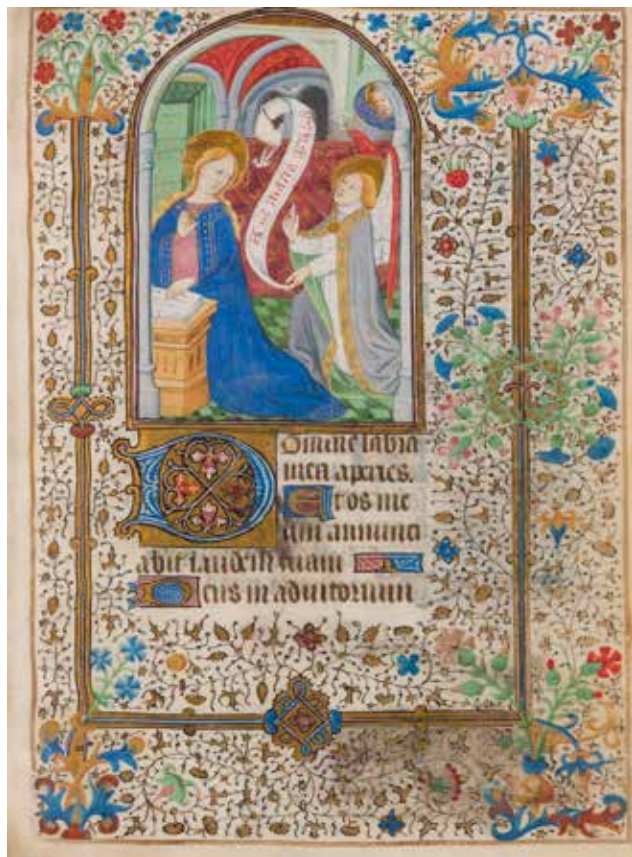 Aue maria gracia
Domine labia
mea aperies.
Et os me
um annunci
abit laudem tuam
Deus in adiutorium